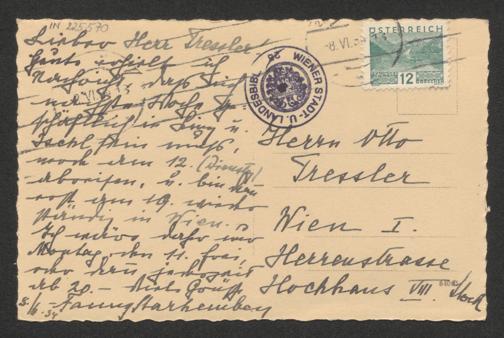 IN 225570
Lieber Herr Tressler!
Heute erhielt ich
Nachricht, dass ich
nächste Woche ge-
schäftlich in Linz u.
Ischl sein muss,
noch dem 12. (Dienstag)
abreisen, u. bin
erst am 19. wieder
ständig in Wien.
Ich wäre daher nur
Montag den 11. frei,
oder dann
ab 20. – Viele Grüsse
Fanny Starhemberg
8./6. 34
WIENER STADT- U. LANDESBIBL.
-8.VI.34
ÖSTERREICH
12
Herrn Otto
Tressler
Wien I.
Herrenstrasse
Hochhaus VIII. Stock